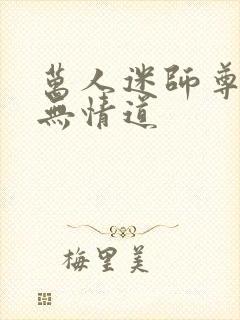 萬人迷師尊
無情道
梅里美